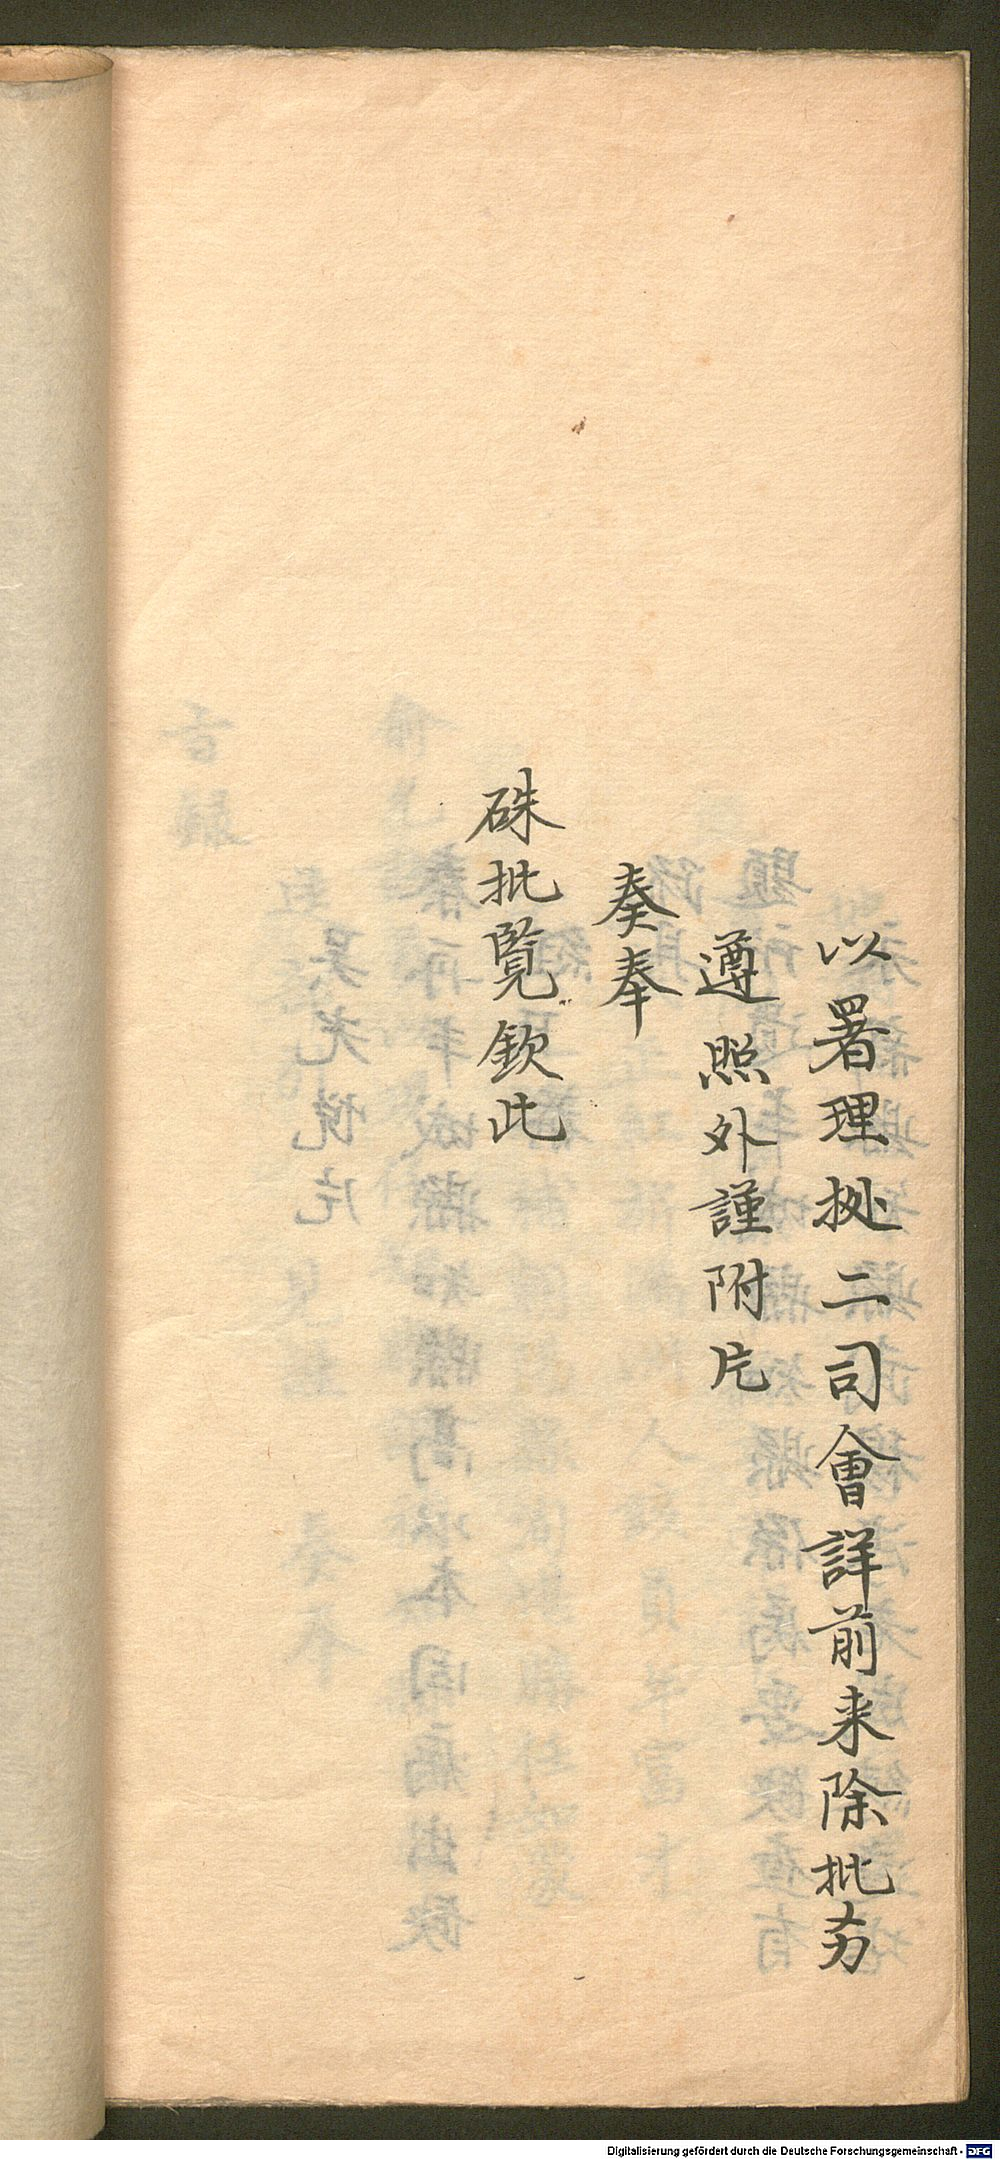 以署理拠二司會詳前来除批
遵照外謹附片
奏奉
硃批覧欽此
Digitalisierung gefördert durch die Deutsche Forschungsgemeinschaft - DFG